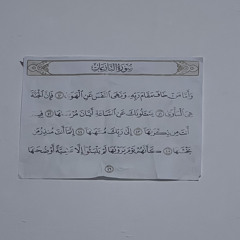 سُورَةُ النَّازِعَاتِ
وَأَمَّا مَنْ خَافَ مَقَامَ رَبِّهِۦ وَنَهَى ٱلنَّفْسَ عَنِ ٱلْهَوَىٰ ٤٠ فَإِنَّ ٱلْجَنَّةَ
هِىَ ٱلْمَأْوَىٰ ٤١ يَسْـَٔلُونَكَ عَنِ ٱلسَّاعَةِ أَيَّانَ مُرْسَىٰهَا ٤٢ فِيمَ
أَنتَ مِن ذِكْرَىٰهَآ ٤٣ إِلَىٰ رَبِّكَ مُنتَهَىٰهَآ ٤٤ إِنَّمَآ أَنتَ مُنذِرُ مَن
يَخْشَىٰهَا ٤٥ كَأَنَّهُمْ يَوْمَ يَرَوْنَهَا لَمْ يَلْبَثُوٓا۟ إِلَّا عَشِيَّةً أَوْ ضُحَىٰهَا
٤٦